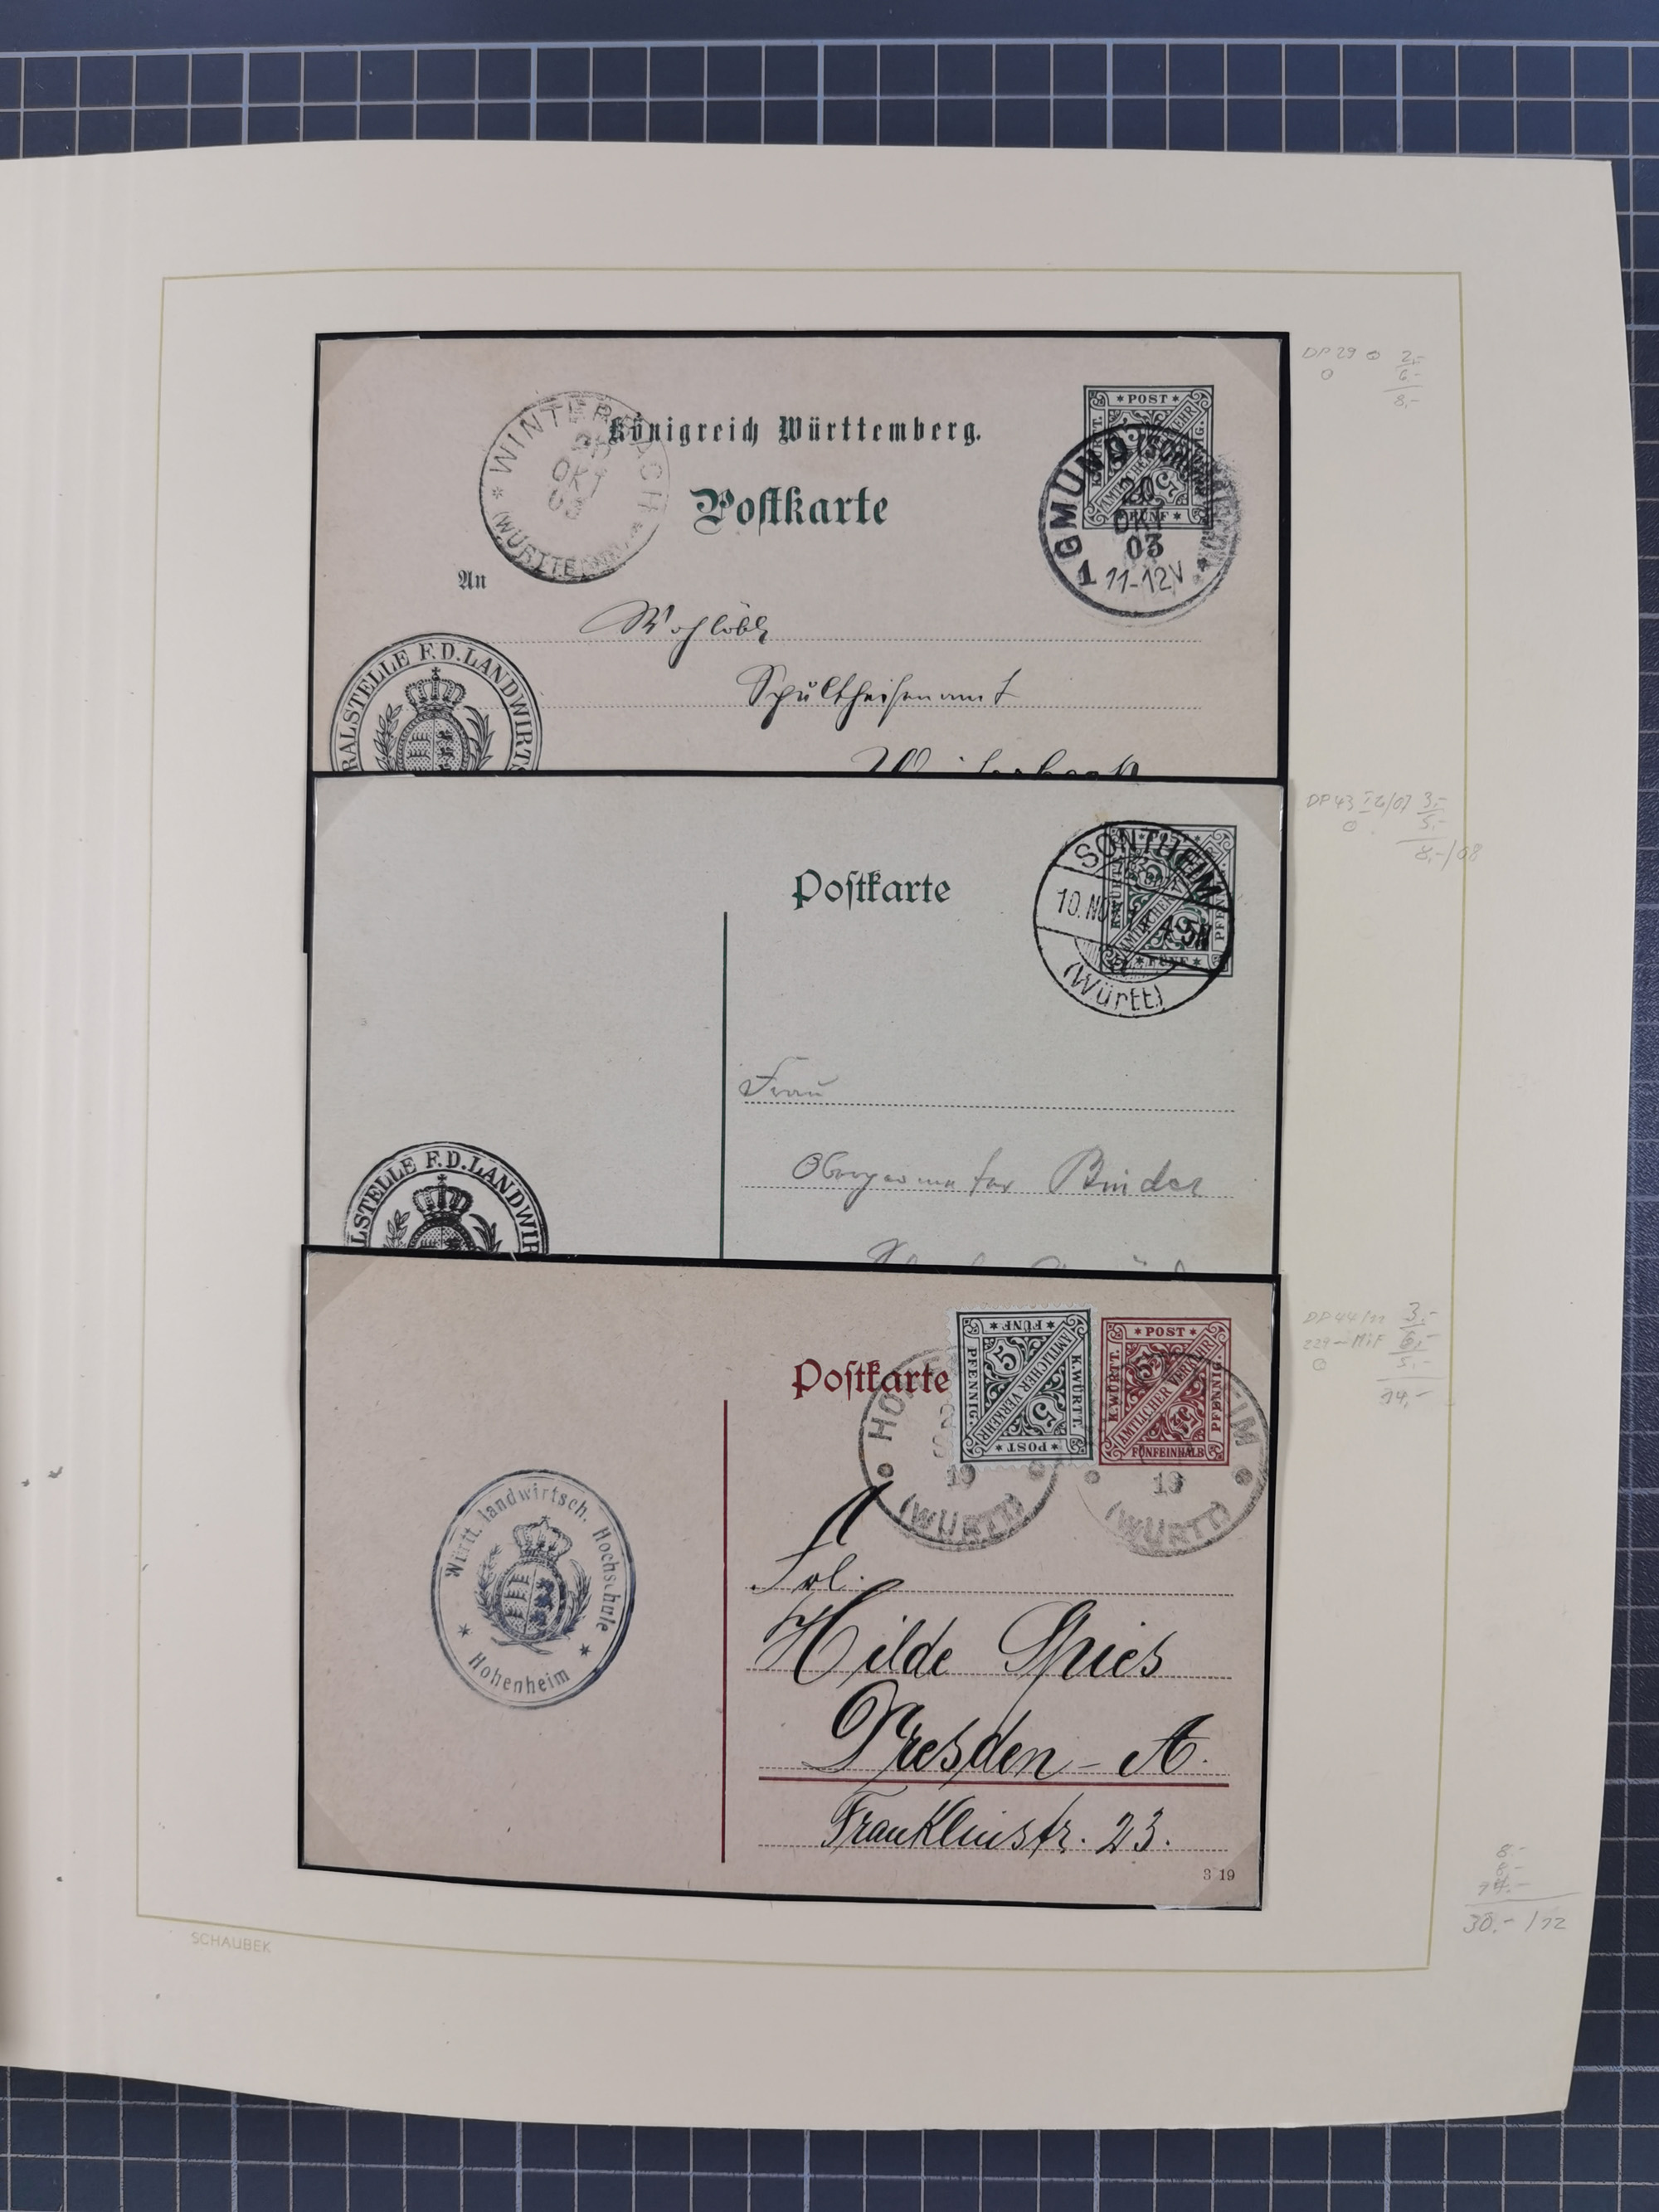 Königreich Württemberg.
Postkarte
An
WINTERBACH
OKT
03
(WÜRTTEMB.)
* POST *
FÜNF
GMÜND (SCHWÄB.)
20
OKT
03
1 11-12V
Wohllöbl
Schultheißenamt
RALSTELLE F.D. LANDWIRTS
DP 29 2,-
6,-
8,-
Postkarte
SONTHEIM
10. NOV
4-5N
(Württ)
AMTLICHER
* FÜNF *
Frau
Binder
ALSTELLE F.D. LANDWIR
DP 43 3,-
5,-
8,-/08
Postkarte
* POST *
K.WÜRTT.
AMTLICHER VERKEHR
PFENNIG.
* FÜNF *
5 5
* POST *
K.WÜRTT.
AMTLICHER VERKEHR
PFENNIG.
FÜNFEINHALB
HOHENHEIM
19
(WÜRTT)
HOHENHEIM
19
(WÜRTT)
Württ. landwirtsch. Hochschule
* Hohenheim *
Frl.
Hilde Spies
Dresden - A.
Franklinstr. 23.
3 19
DP 44/11 3,-
229 - MiF 6,-
5,-
14,-
8,-
8,-
14,-
30,- /12
SCHAUBEK